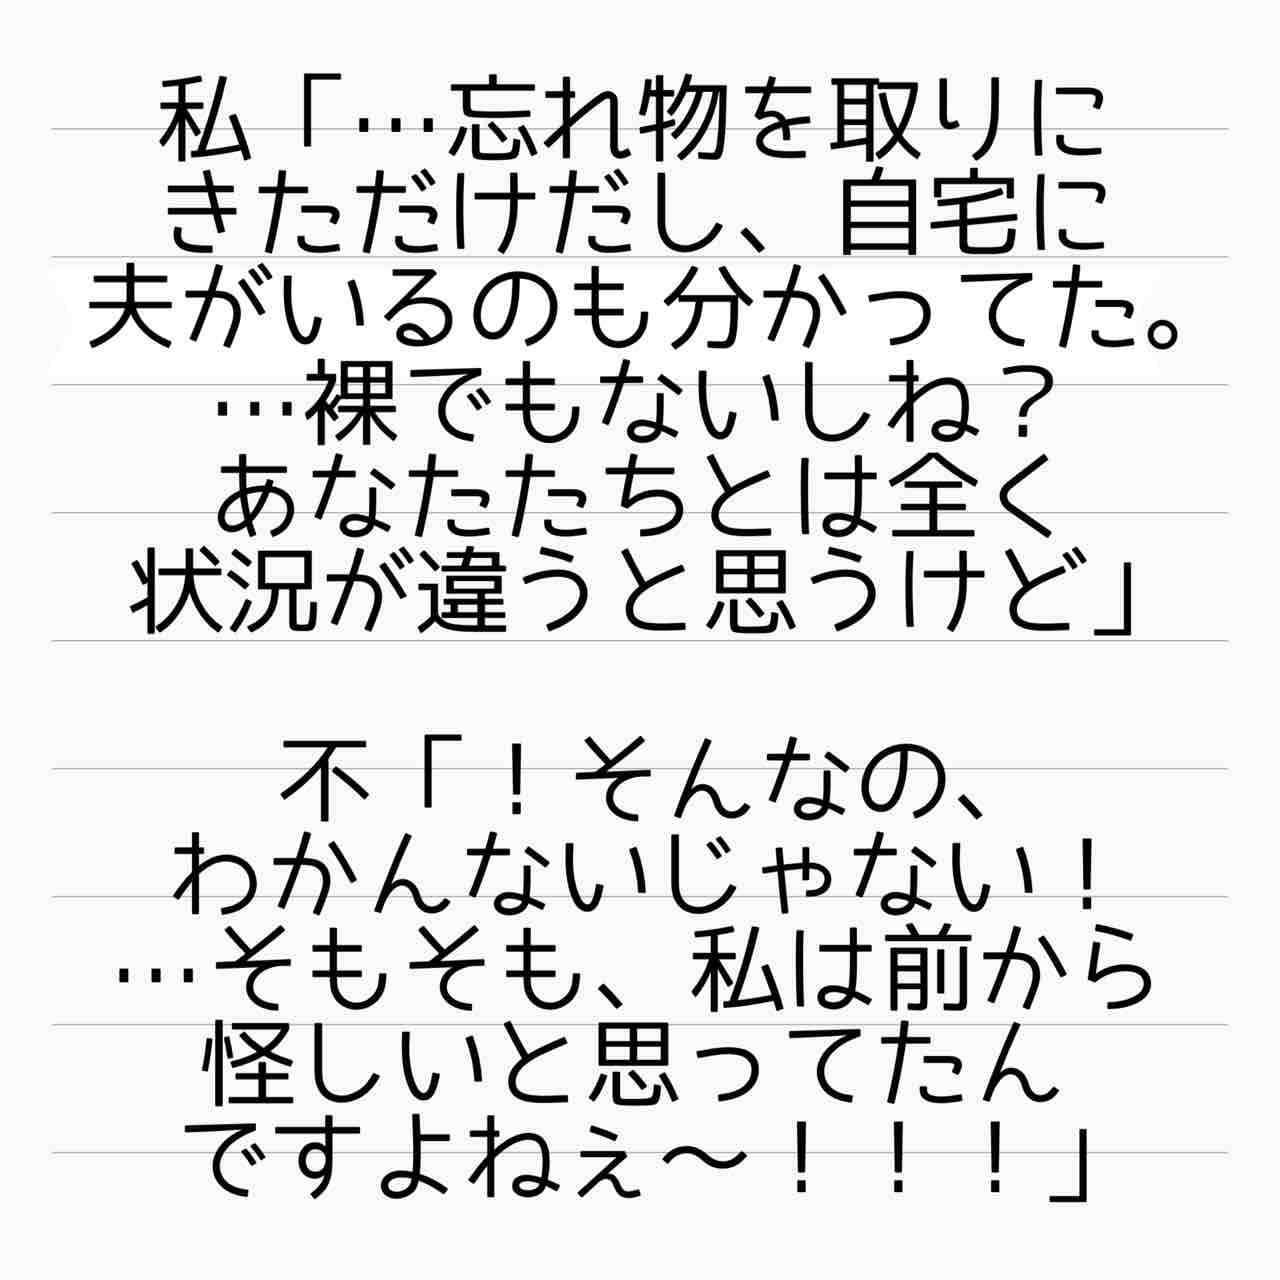 私「…忘れ物を取りに
きただけだし、自宅に
夫がいるのも分かってた。
…裸でもないしね？
あなたたちとは全く
状況が違うと思うけど」
不「！そんなの、
わかんないじゃない！
…そもそも、私は前から
怪しいと思ってたん
ですよねぇ〜！！！」